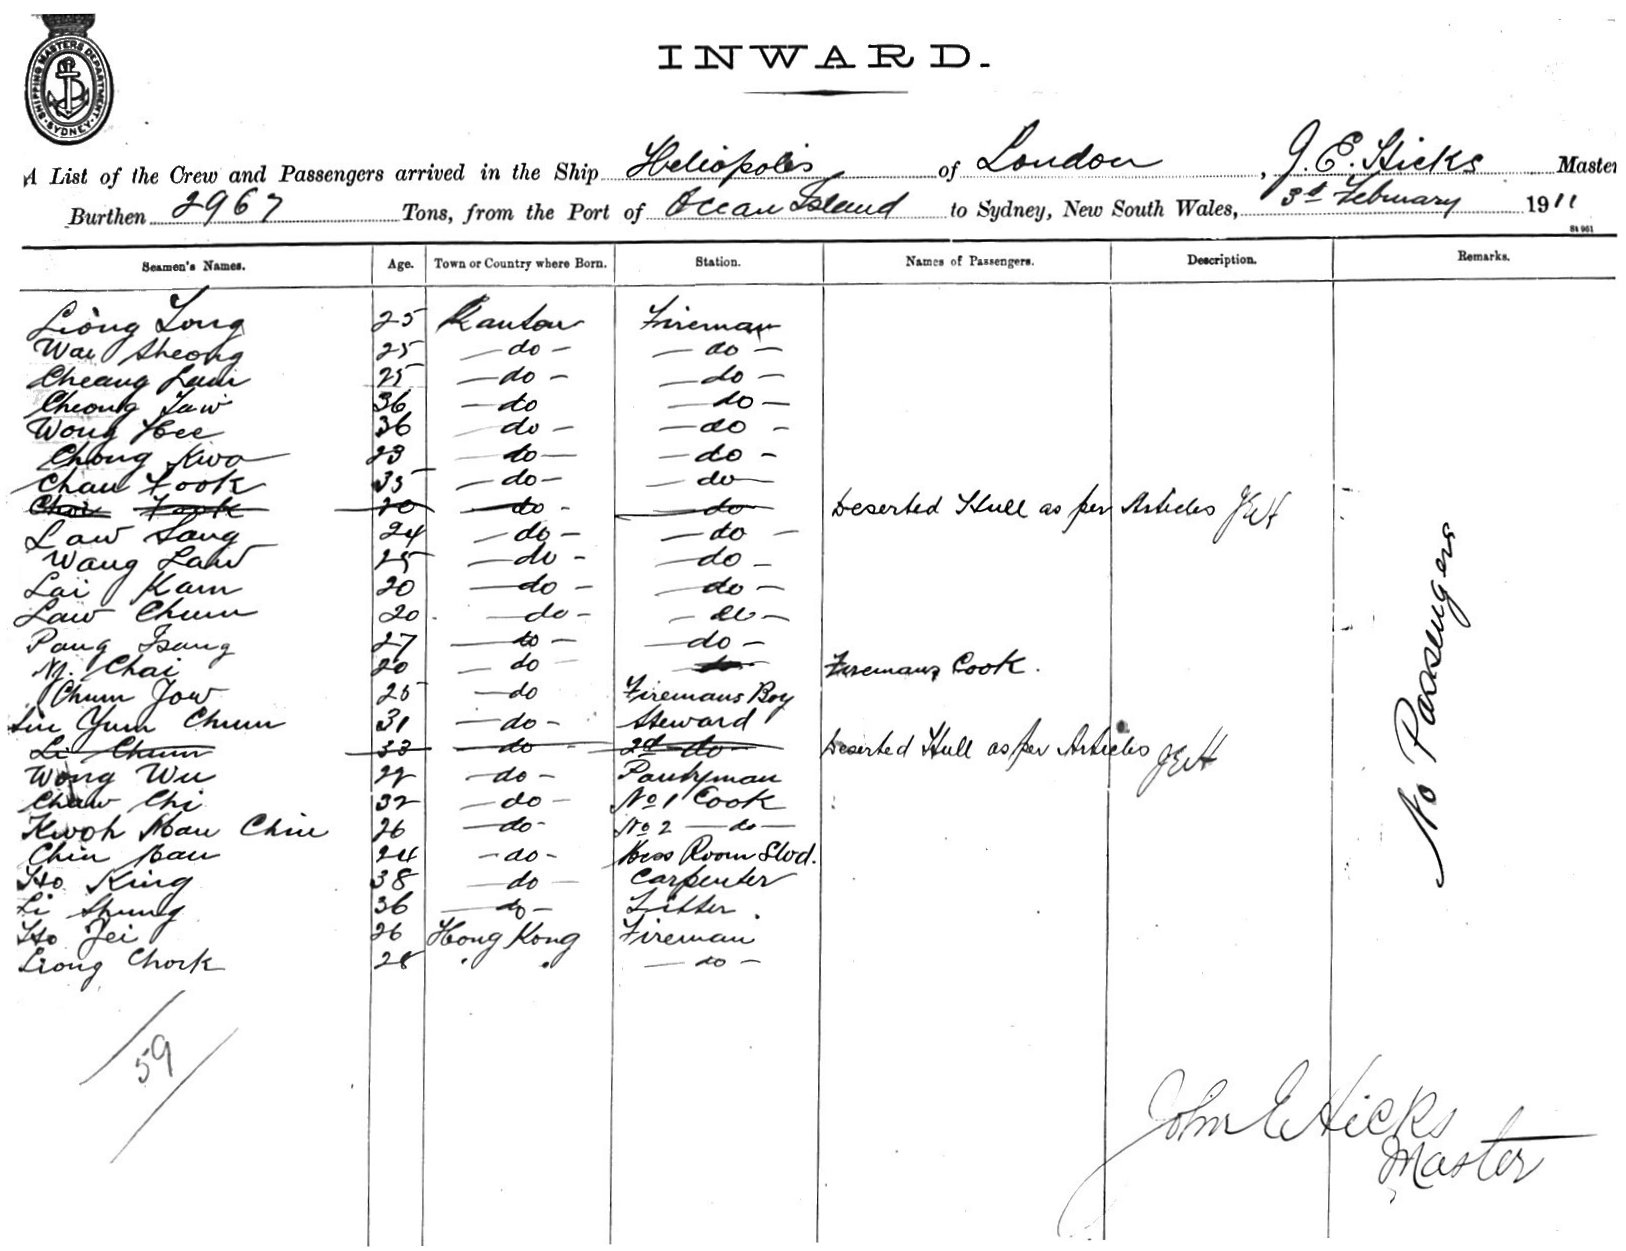 SHIPPING MASTERS DEPARTMENT. SYDNEY.
INWARD.
A List of the Crew and Passengers arrived in the Ship Heliopolis of London, J. E. Hicks Master
Burthen 2967 Tons, from the Port of Ocean Island to Sydney, New South Wales, 3d February 1911
Seamen's Names. Age. Town or Country where Born. Station. Names of Passengers. Description. Remarks.
Liong Tong 25 Kanton Fireman
Wai Sheong 25 — do — — do —
Cheang Lam 25 — do — — do —
Cheong Taw 36 — do — do —
Wong Hee 36 — do — — do —
Chong Kwo 23 — do — — do —
Chau Fook 35 — do — — do —
Choi Fook 20 — do — — do — Deserted Hull as per Articles JEH
Law Sang 24 — do — — do —
Wang Law 25 — do — — do —
Lai Kam 20 — do — — do —
Law Chum 20 — do — — do —
Pang Tsang 27 — do — — do —
Ng. Chai 20 — do — — do — Firemans Cook.
Chum Jow 25 — do Firemans Boy
Yum Chum 31 — do — Steward
Li Chum 33 — do — 2d do — Deserted Hull as per Articles JEH
Wong Wu — do — Pantryman
Chaw Chi 32 — do — No 1 Cook
Kwoh Man Chiu 26 — do — No 2 — do —
Chiu Bau 24 — do — Mess Room Stwd.
Ho King 38 — do — Carpenter
Li Shung 36 — do —
Ho Jei 26 Hong Kong Fireman
Liong Chork 28 " " — do —
No Passengers
59
John E Hicks
Master